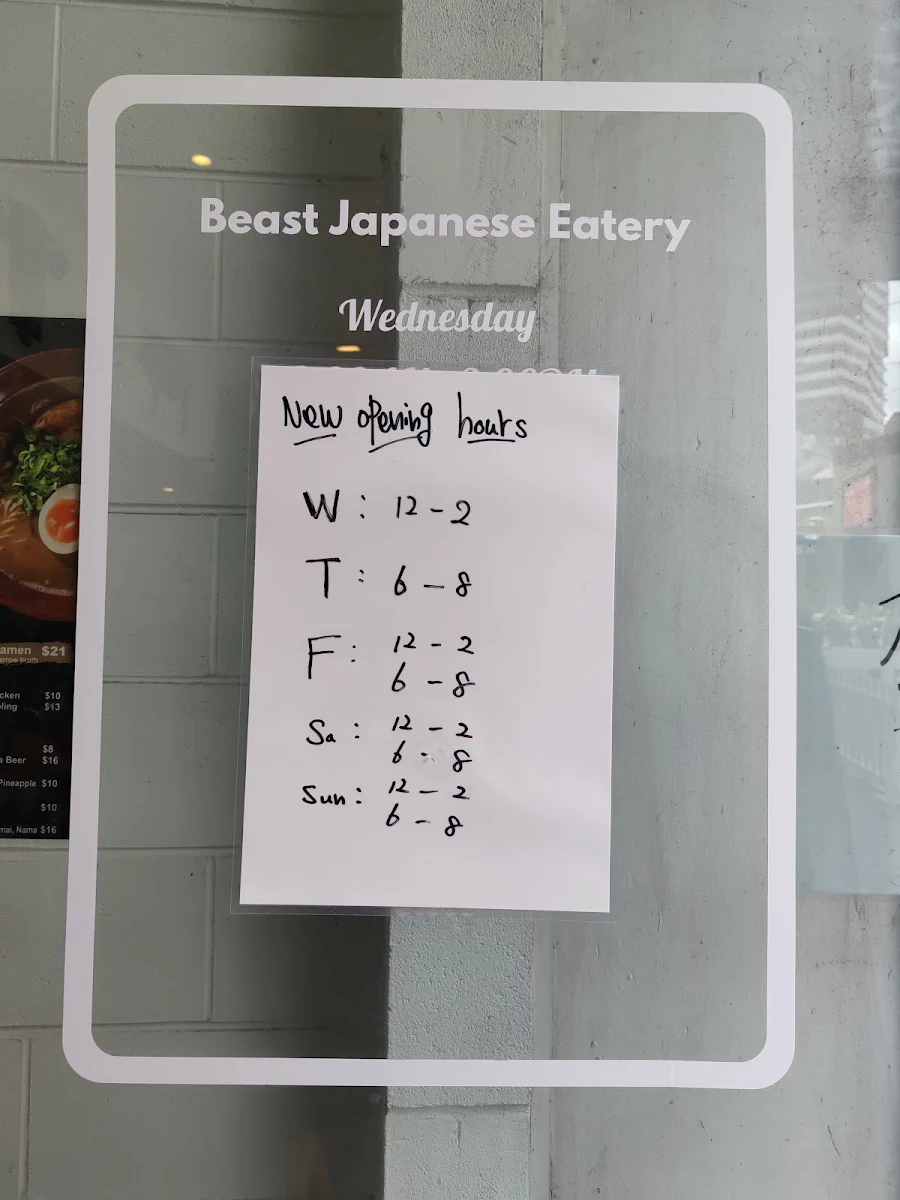 Beast Japanese Eatery
Wednesday
New opening hours
W: 12 - 2
T: 6 - 8
F: 12 - 2
6 - 8
Sa: 12 - 2
6 - 8
Sun: 12 - 2
6 - 8
$21
$10
$13
$8
Beer $16
Pineapple $10
$10
Nama $16